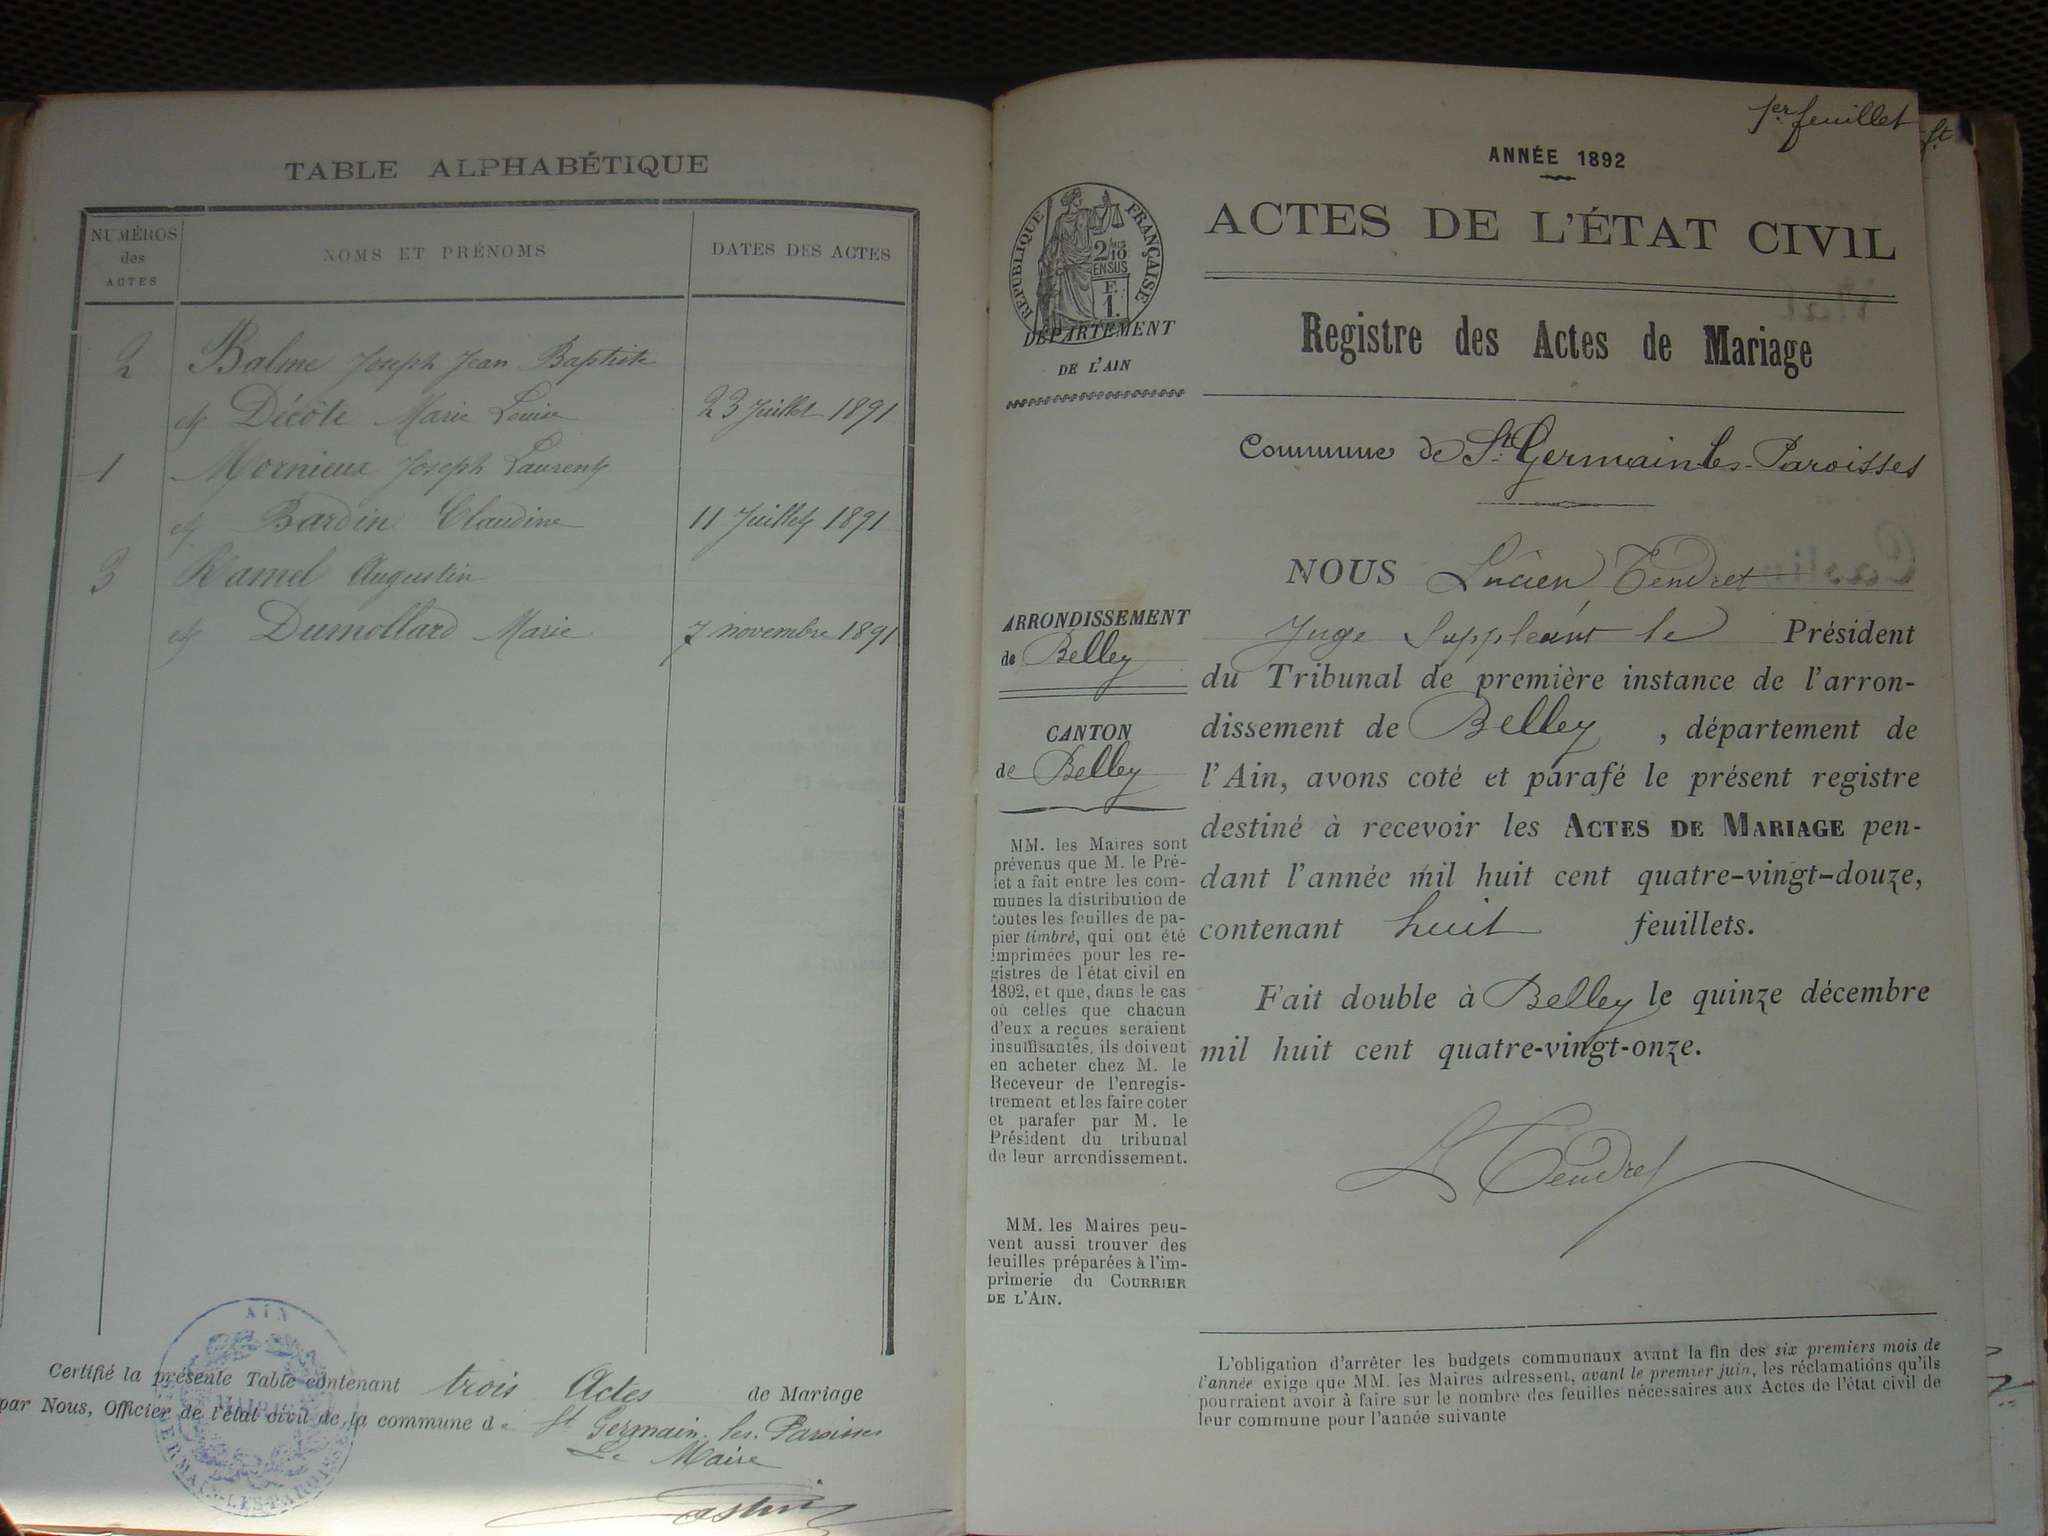 TABLE ALPHABÉTIQUE
NUMÉROS des ACTES
NOMS ET PRÉNOMS
DATES DES ACTES
2 Balme Joseph Jean Baptiste
et Décôte Marie Louise 23 Juillet 1891
1 Mornieux Joseph Laurent
et Bardin Claudine 11 Juillet 1891
3 Ramel Augustin
et Dumollard Marie 7 novembre 1891
Certifié la présente Table contenant trois Actes de Mariage
par Nous, Officier de l'état civil de la commune de St Germain-les-Paroisses
Le Maire
AIN
MAIRIE
GERMAIN-LES-PAROISSES
1er feuillet
ft
ANNÉE 1892
RÉPUBLIQUE FRANÇAISE
2/10
EN SUS
E.
1.
ACTES DE L'ÉTAT CIVIL
DÉPARTEMENT
DE L'AIN
Registre des Actes de Mariage
Commune de St. Germain les-Paroisses
NOUS Lucien Tendret
Juge Suppléant le Président
ARRONDISSEMENT
de Belley
CANTON
de Belley
du Tribunal de première instance de l'arron-
dissement de Belley, département de
l'Ain, avons coté et parafé le présent registre
destiné à recevoir les ACTES DE MARIAGE pen-
dant l'année mil huit cent quatre-vingt-douze,
contenant huit feuillets.
Fait double à Belley le quinze décembre
mil huit cent quatre-vingt-onze.
L Tendret
MM. les Maires sont
prévenus que M. le Pré-
fet a fait entre les com-
munes la distribution de
toutes les feuilles de pa-
pier timbré, qui ont été
imprimées pour les re-
gistres de l'état civil en
1892, et que, dans le cas
où celles que chacun
d'eux a reçues seraient
insuffisantes, ils doivent
en acheter chez M. le
Receveur de l'enregis-
trement et les faire coter
et parafer par M. le
Président du tribunal
de leur arrondissement.
MM. les Maires peu-
vent aussi trouver des
feuilles préparées à l'im-
primerie du COURRIER
DE L'AIN.
L'obligation d'arrêter les budgets communaux avant la fin des six premiers mois de
l'année exige que MM. les Maires adressent, avant le premier juin, les réclamations qu'ils
pourraient avoir à faire sur le nombre des feuilles nécessaires aux Actes de l'état civil de
leur commune pour l'année suivante